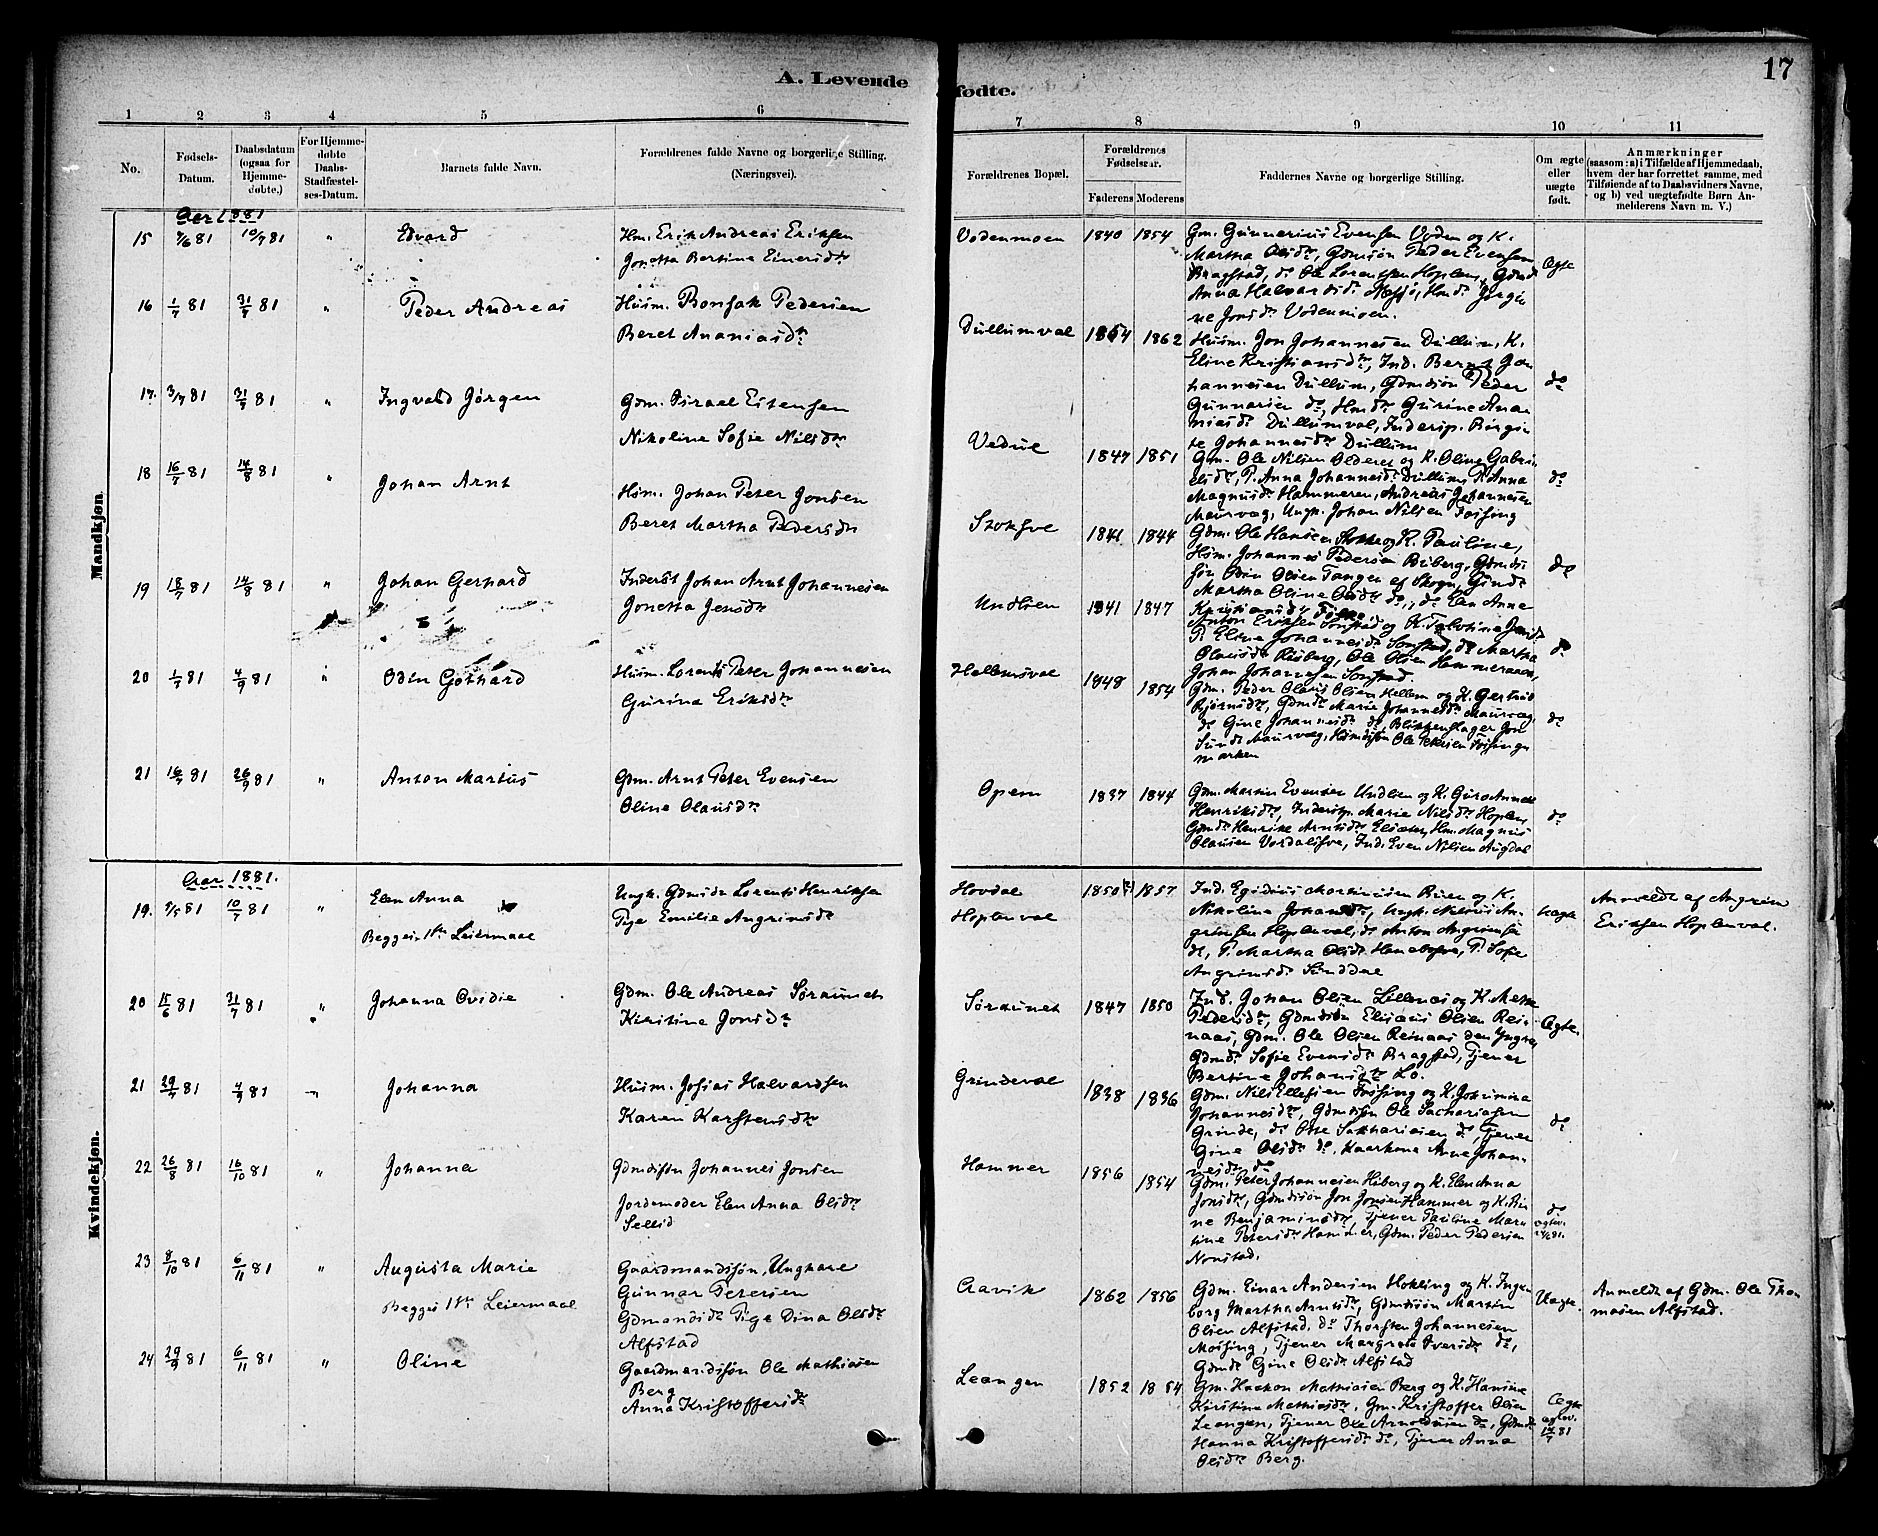 17
A. Levende fødte.
1 2 3 4 5 6 7 8 9 10 11
No.
Fødsels-Datum.
Daabsdatum (ogsaa for Hjemme-døbte.)
For Hjemme-døbte Daabs-Stadfæstel-ses-Datum.
Barnets fulde Navn.
Forældrenes fulde Navne og borgerlige Stilling. (Næringsvei).
Forældrenes Bopæl.
Forældrenes Fødselsaar.
Faderens Moderens
Faddernes Navne og borgerlige Stilling.
Om ægte eller uægte født.
Anmærkninger
(saasom: a) i Tilfælde af Hjemmedaab,
hvem der har forrettet samme, med
Tilføiende af to Daabsvidners Navne,
og b) ved uægtefødte Børn An-
melderens Navn m. V.)
Mandkjøn.
Aar 1881
15 7/6 81 10/7 81 " Edvard
Hm. Erik Andreas Eriksen
Jonetta Bertine Einersdtr
Vodenmoen 1840 1854
Gm. Gunnerius Evensen Voden og K.
Martha Olsdtr, Gdmsøn Peder Evensen
Bragstad, do Ole Lorentsen Hoplen, Gdmd
Anna Halvardsdtr
ne Jonsdtr Vodenmoen.
Ægte
16 1/7 81 31/7 81 " Peder Andreas
Husm. Bonsak Pedersen
Beret Ananiasdtr
Dullumval 1854 1862
Husm. Jon Johannesen Dullum, K.
Eline Kristiansdtr, Ind. Bernt Jo-
hannesen Dullum, Gdmdsøn Peder
Gunnarsen do, Hmdtr Gurine Ana-
niasdtr Dullumval, Inderstp. Birgit-
te Johannesdtr Dullum
do
17. 3/7 81 31/7 81 " Ingvald Jørgen
Gdm. Israel Eitensen
Nikoline Sofie Nilsdtr
Vedul 1847 1851
Gm. Ole Nilsen Olderet og K. Oline Gabri-
elsdtr, P. Anna Johannesdtr Dullum, P. Anna
Magnusdtr Hammeren, Andreas Johannesen
Maurvæg, Ungk. Johan Nilsen Foising
do
18 16/7 81 14/8 81 " Johan Arnt
Hsm. Johan Peter Jonsen
Beret Martha Pedersdtr
Stokhve 1841 1844
Gdm. Ole Hansen og K. Pauline,
Hsm. Johannes Pedersen Biberg, Gdmds-
søn Odin Olsen Tangen af Skogn, Gdmdtr
Martha Oline Olsdtr do, do Elen Anna
Kristiansdtr
do
19 18/7 81 14/8 81 " Johan Gerhard
Inderst Johan Arnt Johannesen
Jonetta Jensdtr
Undlien 1841 1847
Anton Eriksen Sonstad og K. Jensdtr
P. Eline Johannesdtr Sonstad, do Martha
Olausdtr Risberg, Ole Olsen Hammeraas,
Johan Johannesen Sonstad.
do
20 1/7 81 4/9 81 " Odin Gothard
Husm. Lorents Peter Johannesen
Gurina Eriksdtr
Hellemsval 1848 1854
Gdm. Peder Olaus Olsen Hellem og K. Gertrud
Bjørnsdtr, Gdmdtr Marie Johannesdtr Maurvæg,
do Gine Johannesdtr do, Blikkenslager Jon
Sunde Maurvæg, Hsmdssøn Ole Petersen Foisings-
marken
do
21 16/7 81 26/9 81 " Anton Marius
Gdm. Arnt Peter Evensen
Oline Olausdtr
Opem 1837 1844
Gdm. Martin Evensen Undlien og K. Guro Anna
Henriksdtr, Inderstp. Marie Nilsdtr Hoplen,
Gdmdtr Henrike Arntsdtr Elsæter, Hm. Magnus
Olausen Vordalshve, Ind. Even Nilsen Augdal
do
Kvindekjøn.
Aar 1881.
19. 7/5 81 10/7 81 " Elen Anna
Begges 1ste Leiermaal
Ungk. Gdmssøn Lorents Henriksen
Pige Emilie Angrimsdtr
Hovdal
Hoplenval
1850 1857
Ind. Egidius Martinusen Biren og K.
Nikoline Johansdtr, Ungk. Nilaus An-
grimsen Hoplenval, do Anton Angrimsen
do, P. Martha Olsdtr, P. Sofie
Angrimsdtr
Uægte
Anmeldt af Angrim
Eriksen Hoplenval.
20 15/6 81 31/7 81 " Johanna Ovidie
Gdm. Ole Andreas Søraunet
Kirstine Jonsdtr
Søraunet 1847 1850
Ind. Johan Olsen Lillenas og K. Mette
Pedersdtr, Gdmdsøn Elisæus Olsen Rei-
naas, Gdm. Ole Olsen Reinaas den Yngre,
Gdmdtr Sofie Evensdtr Bragstad, Tjener
Bertine Johansdtr Lo.
Ægte.
21 29/7 81 4/9 81 " Johanna
Husm. Josias Halvardsen
Karen Karstensdtr
Grindeval 1838 1836
Gdm. Nils Ellefsen Foising og K. Johanna
Johannesdtr, Gdmdsøn Ole Sachariasen
Grinde, do Otte Sakhariasen do, Tjener
Gine Olsdtr do, Kaarkone Anne Johan-
nesdtr do
do
22 26/8 81 16/10 81 " Johanna
Gdmdsøn Johannes Jonsen
Jordemoder Elen Anna Olsdtr
Sellid
Hammer 1856 1854
Gdm. Peter Johannesen Hiberg og K. Elen Anna
Jonsdtr, Gdmdsøn Jon Jonsen Hammer og K. Bi-
ne Benjaminsdtr, Tjener Pauline Mar-
tine Petersdtr Hammer, Gdm. Peder Pedersen
Nonstad.
do
23 8/10 81 6/11 81 " Augusta Marie
Begges 1ste Leiermaal
Gaardmandssøn, Ungkarl
Gunnar Petersen
Gdmandsdtr Pige Dina Olsdtr
Alfstad
Aavik 1862 1856
Gdm. Einar Andersen Hokling og K. Inge-
borg Martha Arntsdtr, Gdmdsøn Martin
Olsen Alfstad, do Thorsten Johannesen
Moising, Tjener Margrete Iversdtr do,
Gdmdtr Gine Olsdtr Alfstad
Uægte.
Anmeldt af Gdm. Ole Tho-
masen Alfstad.
24 29/9 81 6/11 81 " Oline
Gaardmandssøn Ole Mathiasen
Berg
Anna Kristoffersdtr
Leangen 1852 1854
Gm. Haakon Mathiasen Berg og K. Hanine
Kirstine Mathiasdtr, Gm. Kristoffer Olsen
Leangen, Tjener Ole Arnoldusen do, Gdmdtr
Hanna Kristoffersdtr do, Tjener Anna
Olsdtr Berg.
Ægte
14/7 81